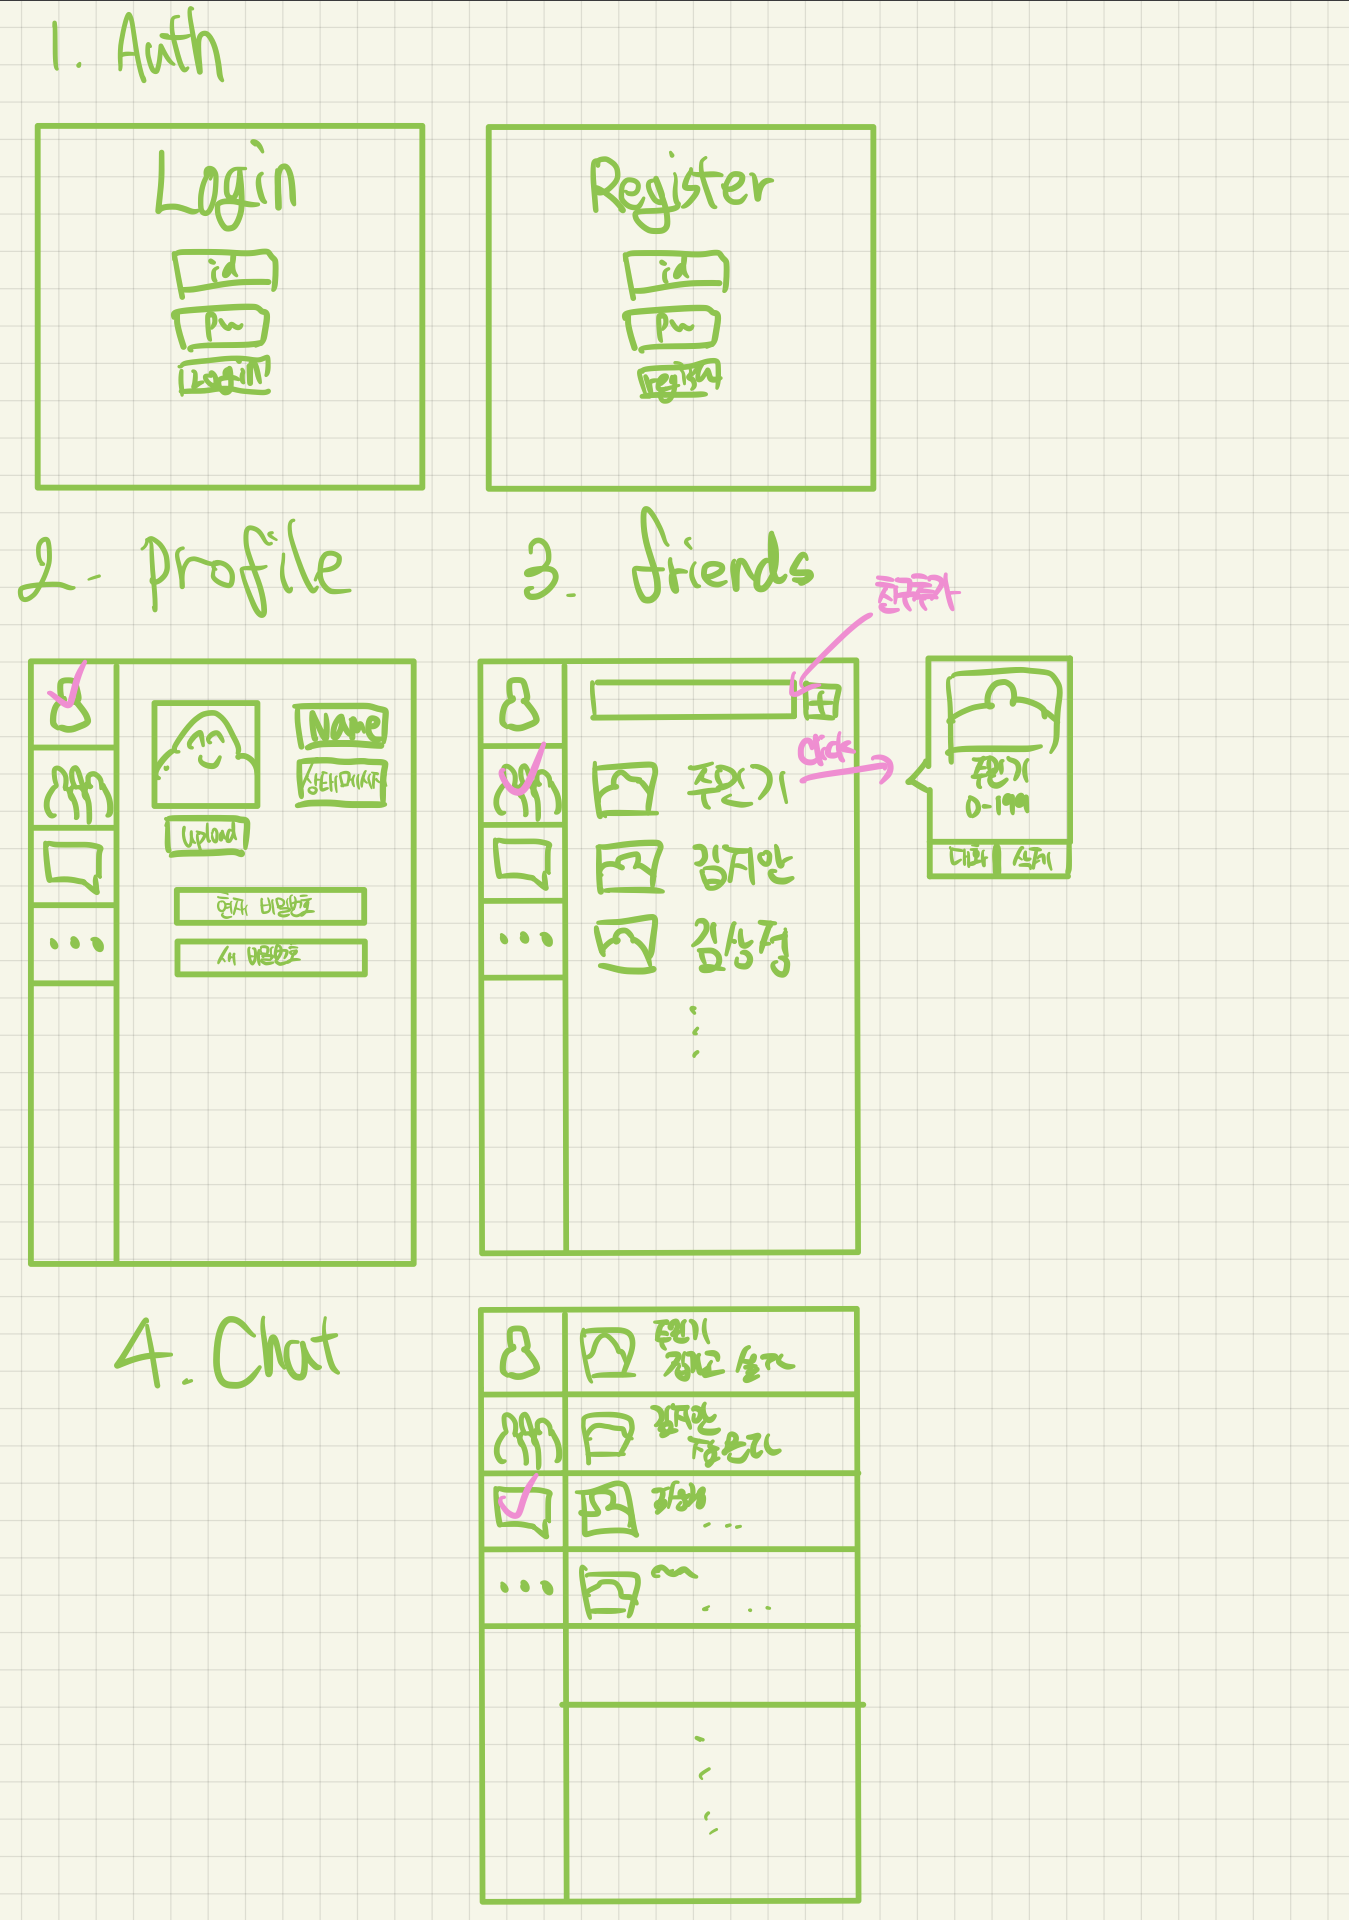 1. Auth
Login
id
pw
Login
Register
id
pw
register
2. Profile
Name
상태메시지
upload
현재 비밀번호
새 비밀번호
3. friends
친구추가
click
주민기
김지안
김상정
주민기
대화
삭제
4. Chat
주민기
김지안